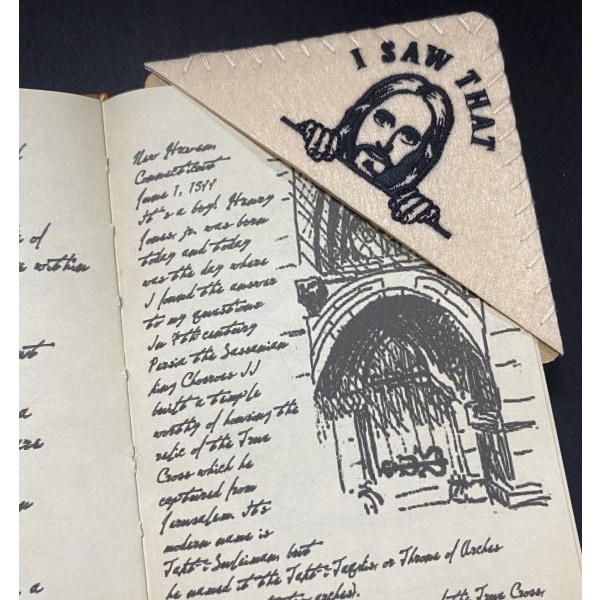 I SAW THAT
of
within
a
a
New Haven,
Connecticut
June 1,
It's a boy! Henry
Jones, jr. was born
today and today
was the day where
I found the answer
to my questions
In 7th century
Persia the Sassanian
king Chosroes II
built a temple
worthy of housing the
relic of the True
Cross which he
captured from
Jerusalem. It's
modern name is
Takt-i-Suleiman, but
he named it the Takt-i-Taqdis, or Throne of Arches
arches). the True Cross,